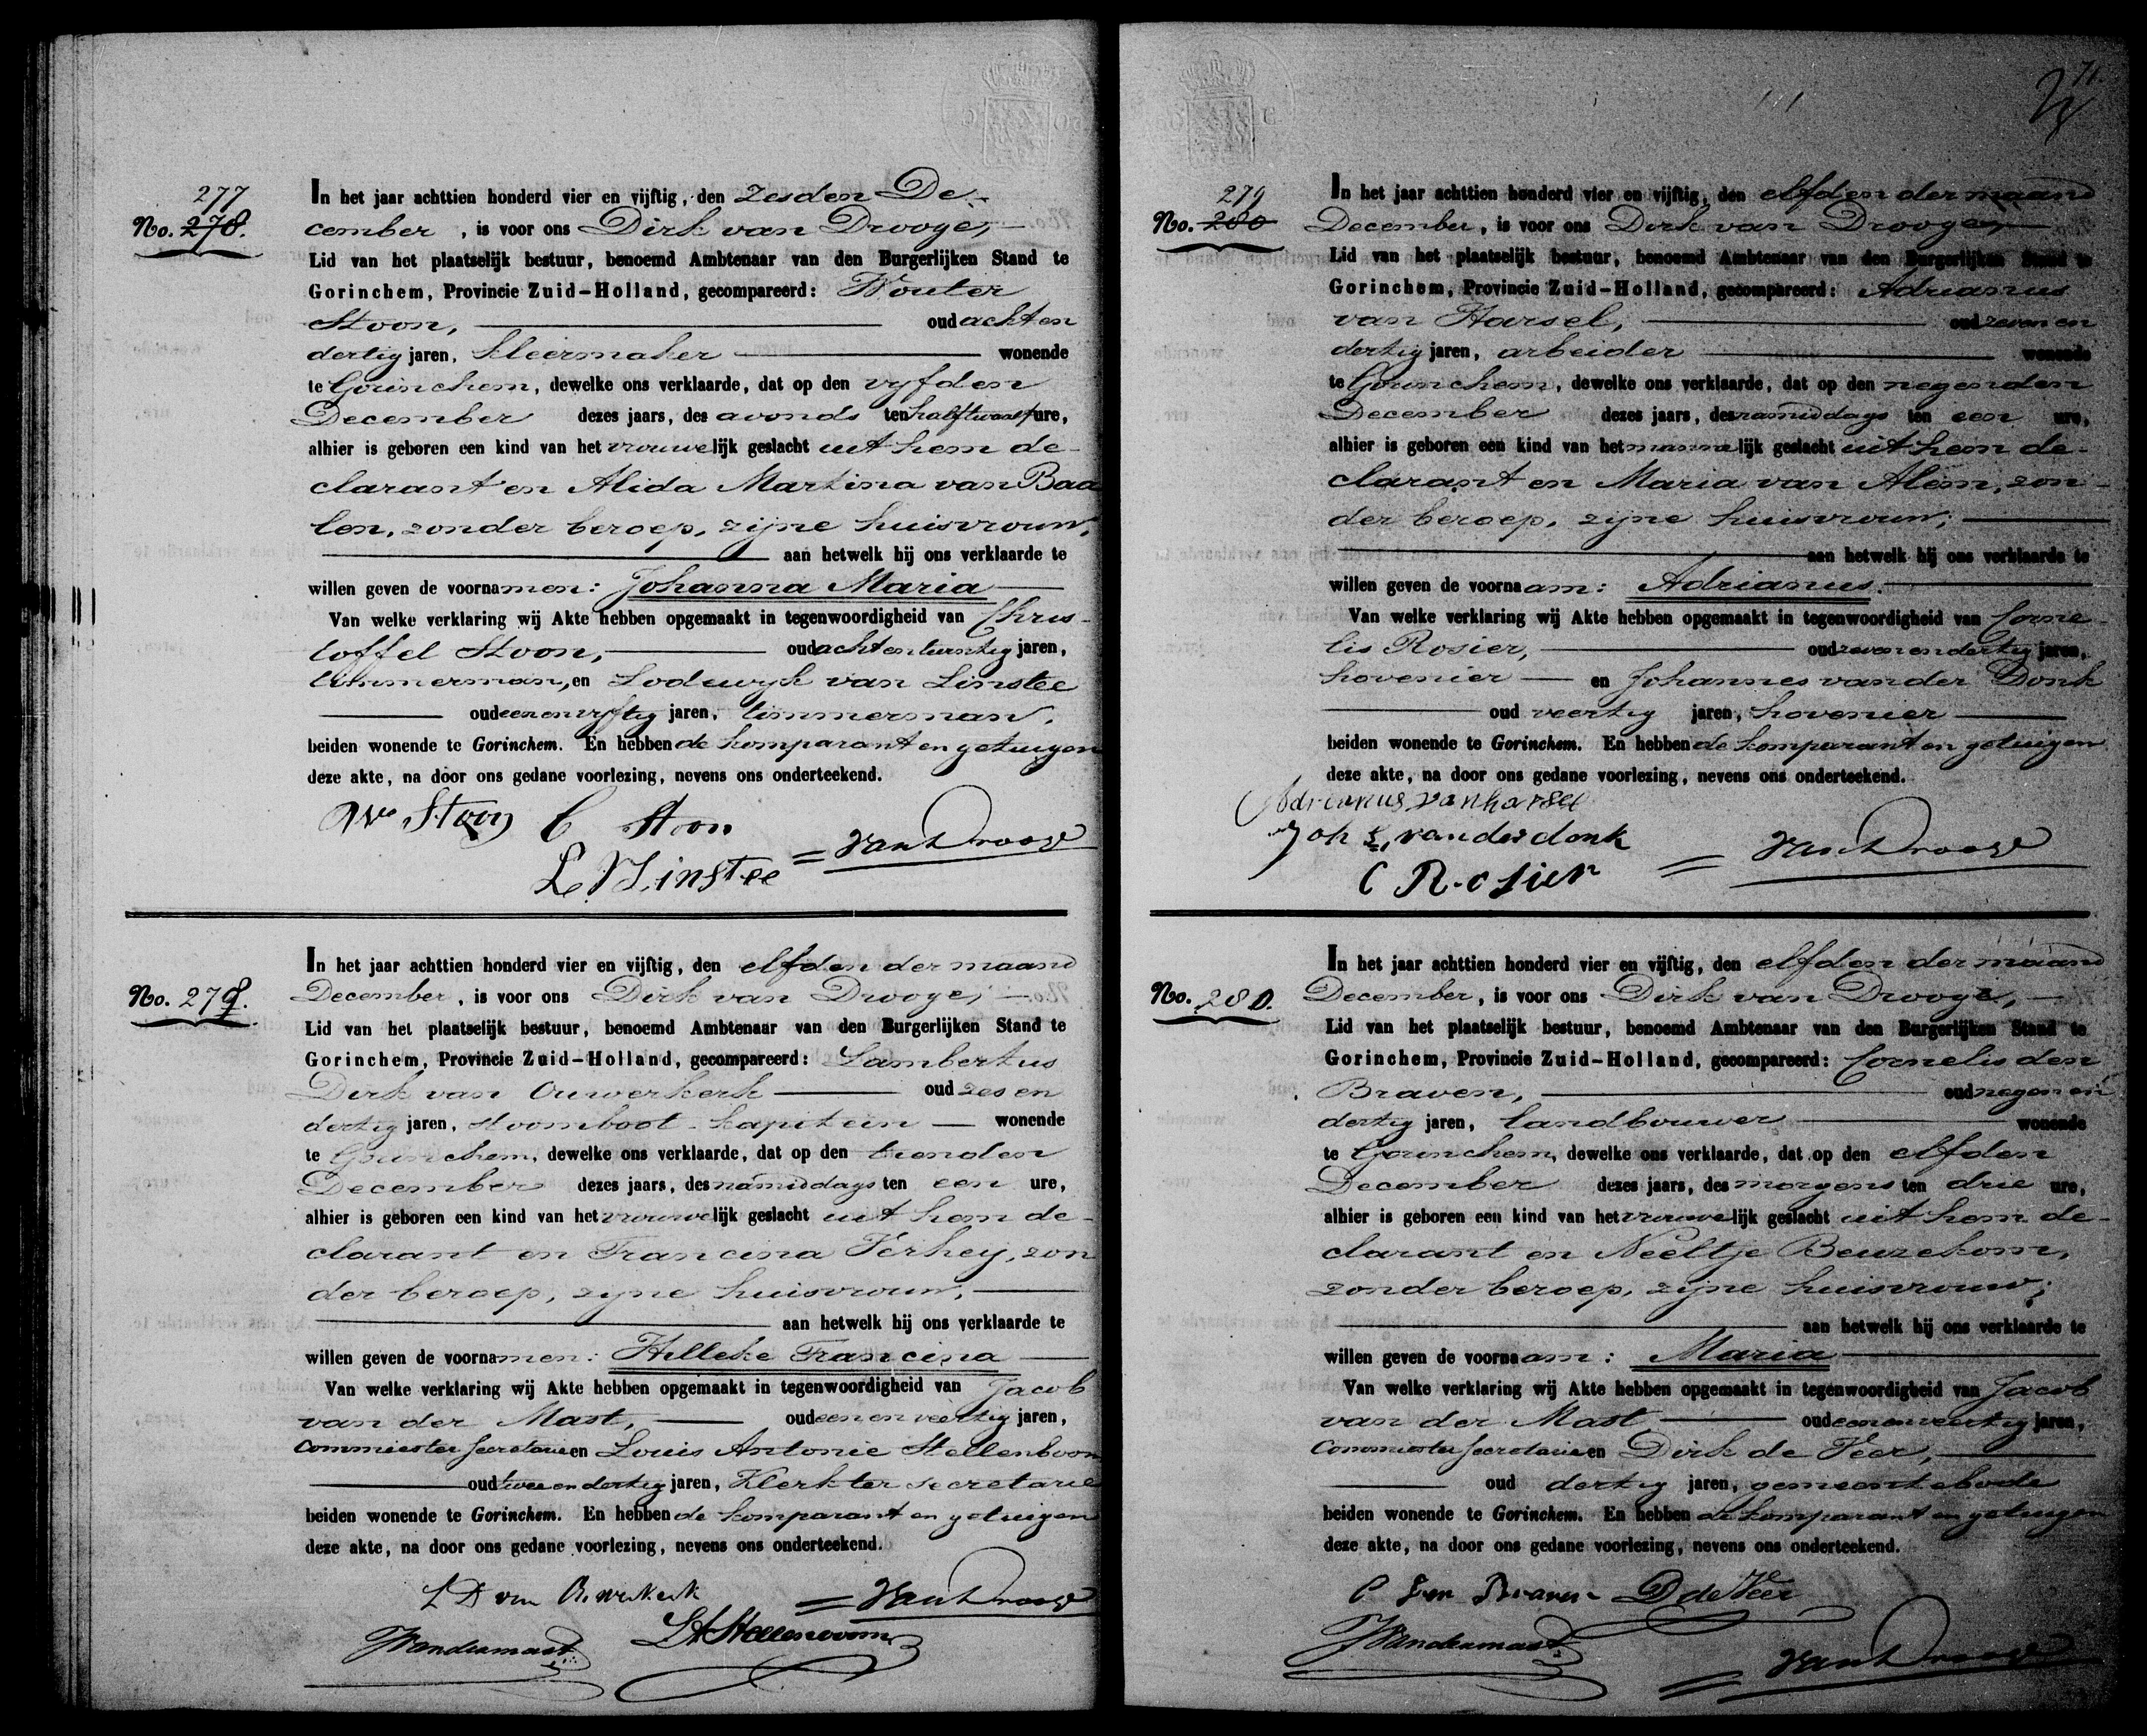 277
No. 278.
In het jaar achttien honderd vier en vijftig, den Zesden De-
cember, is voor ons Dirk van Drooge,
Lid van het plaatselijk bestuur, benoemd Ambtenaar van den Burgerlijken Stand te
Gorinchem, Provincie Zuid-Holland, gecompareerd: Wouter
Stoon, oud acht en
dertig jaren, kleermaker wonende
te Gorinchem, dewelke ons verklaarde, dat op den vyfden
December dezes jaars, des avonds ten half twaalf ure,
alhier is geboren een kind van het vrouwelijk geslacht uit hem de-
clarant en Alida Martina van Baa
len, zonder beroep, zijne huisvrouw,
aan hetwelk hij ons verklaarde te
willen geven de voornamen: Johanna Maria
Van welke verklaring wij Akte hebben opgemaakt in tegenwoordigheid van Chris-
toffel Stoon, oud acht en twintig jaren,
timmerman, en Lodewyk van Linstee
oud een en vyftig jaren, timmerman,
beiden wonende te Gorinchem. En hebben de komparant en getuigen
deze akte, na door ons gedane voorlezing, nevens ons onderteekend.
W Stoon C Stoon
L V Linstee = van Drooge
No. 278.
In het jaar achttien honderd vier en vijftig, den elfden der maand
December, is voor ons Dirk van Drooge,
Lid van het plaatselijk bestuur, benoemd Ambtenaar van den Burgerlijken Stand te
Gorinchem, Provincie Zuid-Holland, gecompareerd: Lambertus
Dirk van Ouwerkerk oud zes en
dertig jaren, stoomboot-kapitein wonende
te Gorinchem, dewelke ons verklaarde, dat op den tienden
December dezes jaars, des namiddags ten een ure,
alhier is geboren een kind van het vrouwelijk geslacht uit hem de-
clarant en Francina Verhey, zon
der beroep, zijne huisvrouw,
aan hetwelk hij ons verklaarde te
willen geven de voornamen: Hilleke Francina
Van welke verklaring wij Akte hebben opgemaakt in tegenwoordigheid van Jacob
van der Mast, oud een en veertig jaren,
Commies ter secretarie en Louis Antonie Stellenboom
oud twee en dertig jaren, Klerk ter secretarie
beiden wonende te Gorinchem. En hebben de komparant en getuigen
deze akte, na door ons gedane voorlezing, nevens ons onderteekend.
L D van Ouwerkerk = van Drooge
J Vandermast L A Stellenboom
71
279
No. 280
In het jaar achttien honderd vier en vijftig, den elfden der maand
December, is voor ons Dirk van Drooge,
Lid van het plaatselijk bestuur, benoemd Ambtenaar van den Burgerlijken Stand te
Gorinchem, Provincie Zuid-Holland, gecompareerd: Adrianus
van Harsel, oud zeven en
dertig jaren, arbeider wonende
te Gorinchem, dewelke ons verklaarde, dat op den negenden
December dezes jaars, des namiddags ten een ure,
alhier is geboren een kind van het mannelijk geslacht uit hem de-
clarant en Maria van Alem, zon-
der beroep, zijne huisvrouw;
aan hetwelk hij ons verklaarde te
willen geven de voornaam: Adrianus.
Van welke verklaring wij Akte hebben opgemaakt in tegenwoordigheid van Corne-
lis Rosier, oud zeven en dertig jaren,
hovenier en Johannes van der Donk
oud veertig jaren, hovenier
beiden wonende te Gorinchem. En hebben de komparant en getuigen
deze akte, na door ons gedane voorlezing, nevens ons onderteekend.
Adrianus vanharsel
Joh s, vanderdonk = van Drooge
C Rosier
No. 280.
In het jaar achttien honderd vier en vijftig, den elfden der maand
December, is voor ons Dirk van Drooge,
Lid van het plaatselijk bestuur, benoemd Ambtenaar van den Burgerlijken Stand te
Gorinchem, Provincie Zuid-Holland, gecompareerd: Cornelis den
Braven, oud negen en
dertig jaren, landbouwer wonende
te Gorinchem, dewelke ons verklaarde, dat op den elfden
December dezes jaars, des morgens ten drie ure,
alhier is geboren een kind van het vrouwelijk geslacht uit hem de-
clarant en Neeltje Beuzekom,
zonder beroep, zijne huisvrouw;
aan hetwelk hij ons verklaarde te
willen geven de voornaam: Maria
Van welke verklaring wij Akte hebben opgemaakt in tegenwoordigheid van Jacob
van der Mast oud een en veertig jaren,
Commies ter secretarie en Dirk de Veer,
oud dertig jaren, gemeentebode
beiden wonende te Gorinchem. En hebben de komparant en getuigen
deze akte, na door ons gedane voorlezing, nevens ons onderteekend.
C den Braven D de Veer
J Vandermast = van Drooge